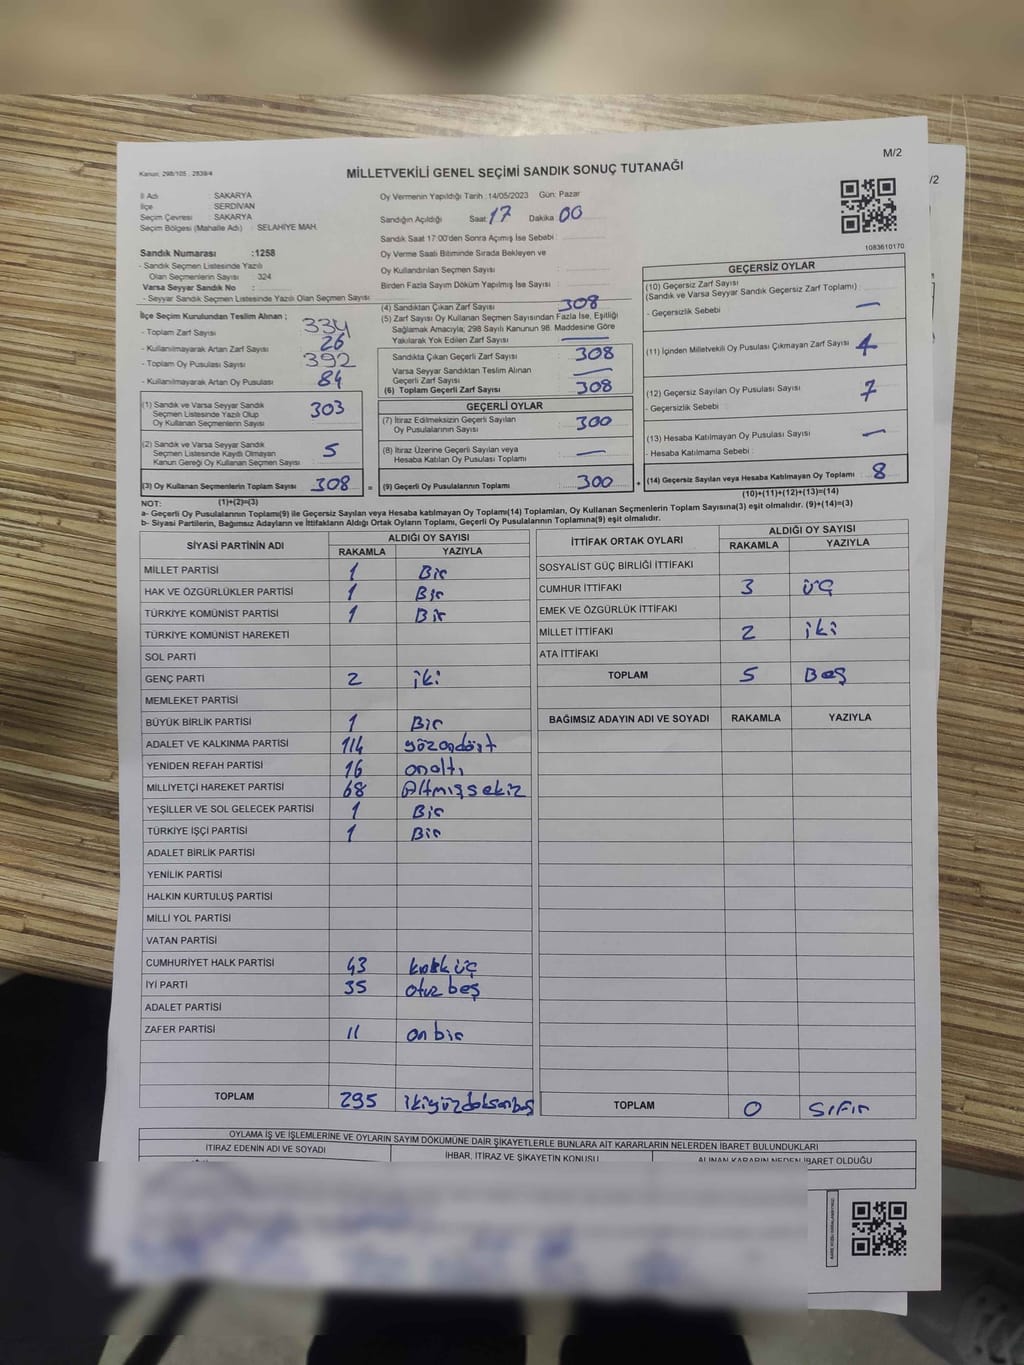 M/2
/2
Kanun; 298/105 , 2839/4
MİLLETVEKİLİ GENEL SEÇİMİ SANDIK SONUÇ TUTANAĞI
İl Adı SAKARYA
İlçe SERDİVAN
Seçim Çevresi SAKARYA
Seçim Bölgesi (Mahalle Adı) : SELAHİYE MAH.
Sandık Numarası :1258
- Sandık Seçmen Listesinde Yazılı
Olan Seçmenlerin Sayısı 324
Varsa Seyyar Sandık No :
- Seyyar Sandık Seçmen Listesinde Yazılı Olan Seçmen Sayısı
Oy Vermenin Yapıldığı Tarih :14/05/2023 Gün: Pazar
Sandığın Açıldığı Saat 17 Dakika 00
Sandık Saat 17:00'den Sonra Açımış İse Sebebi :
Oy Verme Saati Bitiminde Sırada Bekleyen ve
Oy Kullandırılan Seçmen Sayısı :
Birden Fazla Sayım Döküm Yapılmış İse Sayısı :
1083610170
İlçe Seçim Kurulundan Teslim Alınan ;
- Toplam Zarf Sayısı 334
- Kullanılmayarak Artan Zarf Sayısı 26
- Toplam Oy Pusulası Sayısı 392
- Kullanılmayarak Artan Oy Pusulası 84
(1) Sandık ve Varsa Seyyar Sandık
Seçmen Listesinde Yazılı Olup
Oy Kullanan Seçmenlerin Sayısı 303
(2) Sandık ve Varsa Seyyar Sandık
Seçmen Listesinde Kaydlı Olmayan
Kanun Gereği Oy Kullanan Seçmen Sayısı 5
(3) Oy Kullanan Seçmenlerin Toplam Sayısı 308 =
(1)+(2)=(3)
(4) Sandıktan Çıkan Zarf Sayısı 308
(5) Zarf Sayısı Oy Kullanan Seçmen Sayısından Fazla İse, Eşitliği
Sağlamak Amacıyla; 298 Sayılı Kanunun 98. Maddesine Göre
Yakılarak Yok Edilen Zarf Sayısı —
Sandıkta Çıkan Geçerli Zarf Sayısı 308
Varsa Seyyar Sandıktan Teslim Alınan
Geçerli Zarf Sayısı —
(6) Toplam Geçerli Zarf Sayısı 308
GEÇERLİ OYLAR
(7) İtiraz Edilmeksizin Geçerli Sayılan
Oy Pusulalarının Sayısı 300
(8) İtiraz Üzerine Geçerli Sayılan veya
Hesaba Katılan Oy Pusulası Toplamı —
(9) Geçerli Oy Pusulalarının Toplamı 300 +
GEÇERSİZ OYLAR
(10) Geçersiz Zarf Sayısı
(Sandık ve Varsa Seyyar Sandık Geçersiz Zarf Toplamı) :
- Geçersizlik Sebebi : —
(11) İçinden Milletvekili Oy Pusulası Çıkmayan Zarf Sayısı 4
(12) Geçersiz Sayılan Oy Pusulası Sayısı 7
- Geçersizlik Sebebi :
(13) Hesaba Katılmayan Oy Pusulası Sayısı —
- Hesaba Katılmama Sebebi :
(14) Geçersiz Sayılan veya Hesaba Katılmayan Oy Toplamı 8
(10)+(11)+(12)+(13)=(14)
NOT:
a- Geçerli Oy Pusulalarının Toplamı(9) ile Geçersiz Sayılan veya Hesaba katılmayan Oy Toplamı(14) Toplamları, Oy Kullanan Seçmenlerin Toplam Sayısına(3) eşit olmalıdır. (9)+(14)=(3)
b- Siyasi Partilerin, Bağımsız Adayların ve İttifakların Aldığı Ortak Oyların Toplamı, Geçerli Oy Pusulalarının Toplamına(9) eşit olmalıdır.
SİYASİ PARTİNİN ADI ALDIĞI OY SAYISI
RAKAMLA YAZIYLA
MİLLET PARTİSİ 1 Bir
HAK VE ÖZGÜRLÜKLER PARTİSİ 1 Bir
TÜRKİYE KOMÜNİST PARTİSİ 1 Bir
TÜRKİYE KOMÜNİST HAREKETİ
SOL PARTİ
GENÇ PARTİ 2 iki
MEMLEKET PARTİSİ
BÜYÜK BİRLİK PARTİSİ 1 Bir
ADALET VE KALKINMA PARTİSİ 114 yüzondört
YENİDEN REFAH PARTİSİ 16 onaltı
MİLLİYETÇİ HAREKET PARTİSİ 68 Altmışsekiz
YEŞİLLER VE SOL GELECEK PARTİSİ 1 Bir
TÜRKİYE İŞÇİ PARTİSİ 1 Bir
ADALET BİRLİK PARTİSİ
YENİLİK PARTİSİ
HALKIN KURTULUŞ PARTİSİ
MİLLİ YOL PARTİSİ
VATAN PARTİSİ
CUMHURİYET HALK PARTİSİ 43 kırk üç
İYİ PARTİ 35 otuz beş
ADALET PARTİSİ
ZAFER PARTİSİ 11 on bir
TOPLAM 295 ikiyüzdoksanbeş
İTTİFAK ORTAK OYLARI ALDIĞI OY SAYISI
RAKAMLA YAZIYLA
SOSYALİST GÜÇ BİRLİĞİ İTTİFAKI
CUMHUR İTTİFAKI 3 üç
EMEK VE ÖZGÜRLÜK İTTİFAKI
MİLLET İTTİFAKI 2 iki
ATA İTTİFAKI
TOPLAM 5 Beş
BAĞIMSIZ ADAYIN ADI VE SOYADI RAKAMLA YAZIYLA
TOPLAM 0 sıfır
OYLAMA İŞ VE İŞLEMLERİNE VE OYLARIN SAYIM DÖKÜMÜNE DAİR ŞİKAYETLERLE BUNLARA AİT KARARLARIN NELERDEN İBARET BULUNDUKLARI
İTİRAZ EDENİN ADI VE SOYADI İHBAR, İTİRAZ VE ŞİKAYETİN KONUSU ALINAN KARARIN NEDEN İBARET OLDUĞU